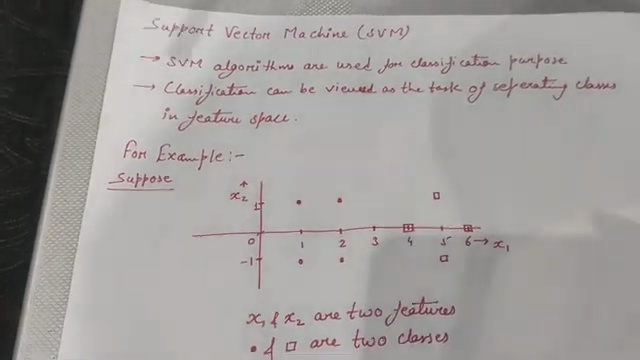 Support Vector Machine (SVM)
→ SVM algorithms are used for classification purpose
→ Classification can be viewed as the task of seperating classes
in feature space.
For Example:-
Suppose
x₂
1
0 1 2 3 4 5 6 → x₁
-1
x₁ & x₂ are two features
• & □ are two classes